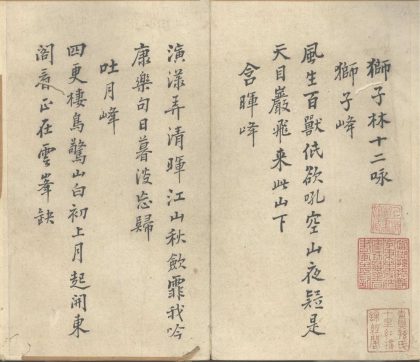 獅子林十二咏
獅子峰
風生百獸低欲吼空山夜疑是
天目巖飛来此山下
含暉峰
演漾弄清暉江山秋飲霏我吟
康樂句日暮澹忘歸
吐月峰
四更棲鳥驚山白初上月起開東
閣看正在雲峯缺